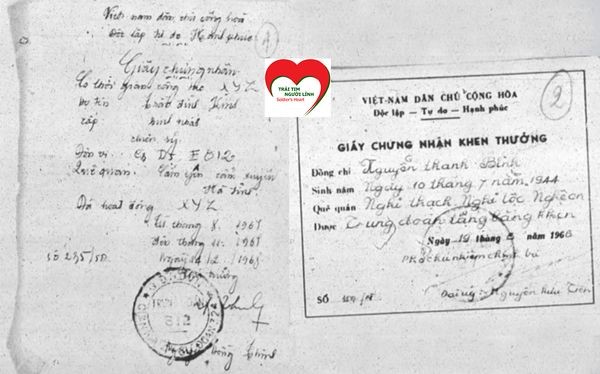 Việt nam dân chủ cộng hoà
Độc lập tự do Hạnh phúc
Giấy chứng nhận
Có thời gian công tác XYZ
Họ tên Trần đình Kính
cấp binh nhất
chiến sỹ
Đơn vị E 812
Quê quán. Cẩm yên cẩm xuyên
Hà tĩnh
Đã hoạt động XYZ
Từ tháng 8. 1967
Đến tháng 11. 1968
Số 235/
812
TRÁI TIM
NGƯỜI LÍNH
Soldier's Heart
2
VIỆT-NAM DÂN CHỦ CỘNG HÒA
Độc lập — Tự do — Hạnh phúc
GIẤY CHỨNG NHẬN KHEN THƯỞNG
Đồng chí Nguyễn thanh Bình
Sinh năm Ngày 10 tháng 7 năm 1944
Quê quán Nghi thạch Nghi lộc Nghệ an
Được Trung đoàn tặng bằng khen
Ngày 19 tháng 5 năm 1968
Phó chủ nhiệm chính trị
SỐ
Đại úy: Nguyễn hữu Tiến